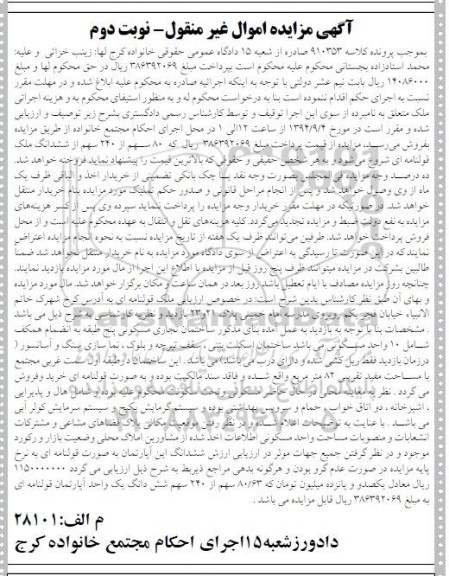 آگهی مزایده اموال غیر منقول- نوبت دوم
بموجب پرونده کلاسه ۹۱۰۳۵۳ صادره از شعبه ۱۵ دادگاه عمومی حقوقی خانواده کرج لها: زینب خزائی و علیه:
محمد استادزاده بجستانی محکوم علیه محکوم است بپرداخت مبلغ ۳۸۶۳۹۲۰۶۹ ریال در حق محکوم لها و مبلغ
۱۴۰۸۶۰۰۰ ریال بابت نیم عشر دولتی با توجه به اینکه اجرائیه صادره به محکوم علیه ابلاغ شده و در مهلت مقرر
نسبت به اجرای حکم اقدام ننموده است بنا به درخواست محکوم له و به منظور استیفای محکوم به و هزینه اجرائی
ملک متعلق به نامبرده از سوی این اجرا توقیف و توسط کارشناس رسمی دادگستری بشرح زیر توصیف و ارزیابی
شده و مقرر است در مورخ ۱۳۹۴/۹/۴ از ساعت ۱۲الی ۱ در محل اجرای احکام مجتمع خانواده از طریق مزایده
بفروش می‌رسد. مزایده از قیمت پرداخت مبلغ ۳۸۶۳۹۲۰۶۹ ریال که ۸۰ سهم از ۲۴۰ سهم از ششدانگ ملک
قولنامه ای شروع می‌شود و به هر شخص حقیقی و حقوقی که بالاترین قیمت را پیشنهاد نماید فروخته خواهد شد.
ده درصد وجه مزایده فی المجلس بصورت وجه نقد یا چک بانکی تضمینی از خریدار اخذ و الباقی ظرف یک
ماه از وی وصول خواهد شد و پس از انجام مراحل قانونی و صدور حکم تملیک مورد مزایده بنام خریدار منتقل
خواهد شد. در صورتیکه در مهلت مقرر خریدار وجه مزایده را پرداخت ننماید سپرده وی پس از کسر هزینه‌های
مزایده به نفع دولت ضبط و مزایده تجدید می‌گردد. کلیه هزینه‌های نقل و انتقال به عهده محکوم علیه است و از محل
فروش پرداخت خواهد شد. طرفین می‌توانند ظرف یک هفته از تاریخ مزایده نسبت به نحوه انجام مزایده اعتراض
نمایند که در این صورت تا رسیدگی به اعتراض از سوی دادگاه مورد مزایده به نام خریدار منتقل نخواهد شد ضمناً
طالبین بشرکت در مزایده میتوانند ظرف پنج روز قبل از مزایده با اطلاع این اجرا از مال مورد مزایده بازدید نمایند.
چنانچه روز مزایده مصادف با ایام تعطیل باشد روز بعد در همان ساعت و مکان برگزار خواهد شد. مال مورد مزایده
و بهای آن طبق نظر کارشناس بدین شرح است: در خصوص ارزیابی ملک قولنامه ای به آدرس کرج شهرک خاتم
الانبیاء خیابان فجر یکم روبروی مدرسه امام خمینی پلاک ۲۱و۲۳ بازدید و نظریه کارشناسی به شرح ذیل می باشد
. مشخصات بنا با توجه به بازدید به عمل آمده بنای مذکور ساختمان تجاری مسکونی پنج طبقه به انضمام همکف
شامل ۱۰ واحد مسکونی می باشد ساختمان اسکلت بتنی ، سقف تیرچه و بلوک ، نما سازی سنگ و آسانسور (
درزمان بازدید فقط ریل کشی شده و دارای درب می باشد) می باشد . این ساختمان درطبقه اول سمت غربی مجتمع
با مساحت مفید تقریبی ۸۳ متر مربع واقع شده و فاقد سند مالکیت بوده و به صورت قولنامه ای خرید وفروش
می گردد . بنا به معاینه محلی در حال حاضر مسکونی و در سکونت محکوم علیه بوده و شامل هال و پذیرایی
، آشپزخانه ، دو اتاق خواب و حمام و سرویس بهداشتی بوده و سیستم گرمایش پکیج و سیستم سرمایش کولر آبی
می باشد . با عنایت به توضیحات اعلامی و با در نظر گرفتن موقعیت مکانی بنا و فضاهای مشاعی و مشترکات
انشعابات و منصوبات مساحت واحد مسکونی اطلاعات اخذ شده از مشاورین املاک محلی وضعیت بازار و رکورد
موجود و در نظر گرفتن جمیع جهات موثر در ارزیابی ارزش ششدانگ این آپارتمان به صورت قولنامه ای به نرخ
پایه مزایده در صورت عدم گرو بودن و هرگونه بدهی مراجع ذیربط به شرح ذیل ارزیابی می گردد ۱۱۵۰۰۰۰۰۰۰
ریال معادل یکصدو و پانزده میلیون تومان که ۸۰/۶۳ سهم از ۲۴۰ سهم شش دانگ یک واحد آپارتمان قولنامه ای
به مبلغ ۳۸۶۳۹۲۰۶۹ ریال قابل مزایده می باشد .
م الف:۲۸۱۰۱
دادورزشعبه۱۵اجرای احکام مجتمع خانواده کرج